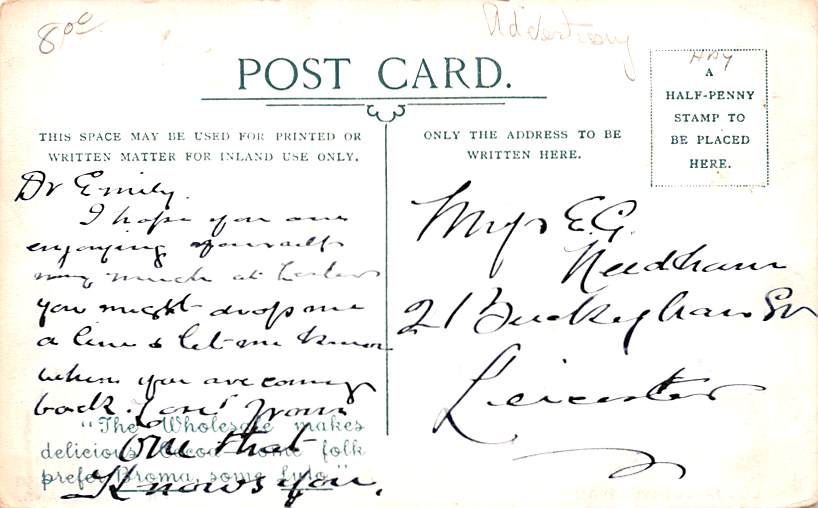 80c
Advertising
POST CARD.
HAY
A
HALF-PENNY
STAMP TO
BE PLACED
HERE.
THIS SPACE MAY BE USED FOR PRINTED OR
WRITTEN MATTER FOR INLAND USE ONLY.
ONLY THE ADDRESS TO BE
WRITTEN HERE.
Dr Emily.
I hope you are
enjoying yourself
very much at
you might drop me
a line & let me know
when you are coming
back. Love from
One that
Knows you.
"The Wholesale makes
delicious Cocoa some folk
prefer Broma, some Lulo."
Miss E.G.
Needham
21 Buckingham
Leicester